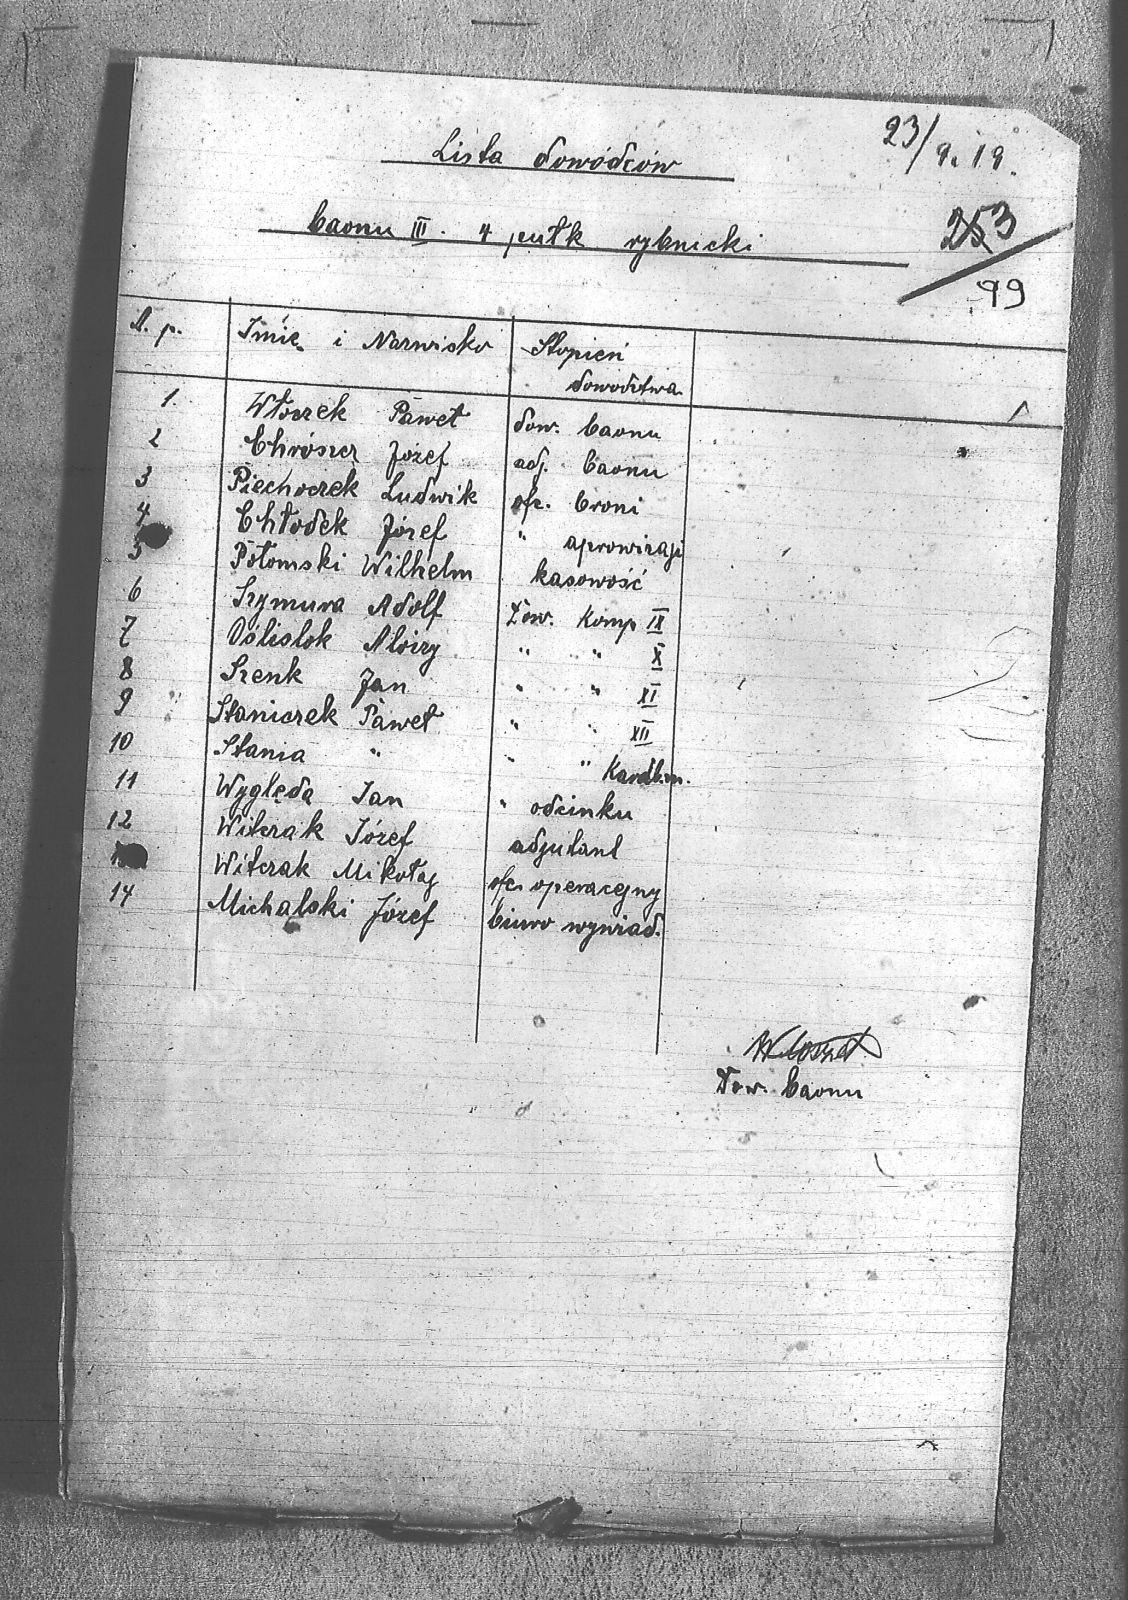 23/9.19.
Lista dowódców
baonu III. 4 pułk rybnicki
253
99
L. p. Imię i Nazwisko Stopień
dowództwa
1. Włoczek Paweł dow. baonu
2 Chrószcz Józef adj. baonu
3 Piechoczek Ludwik ofc. broni
4 Chłodek Józef " aprowizaji
5 Potomski Wilhelm kasowość
6 Szymura Adolf Dow. Komp IX
7 Oslislok Aloizy " " X
8 Szenk Jan " " XI
9 Staniczek Paweł " " XII
10 Stania " " " Karab.m.
11 Wyględa Jan " odcinku
12 Witczak Józef adjutant
Witczak Mikołaj ofc. operacyjny
14 Michalski Józef biuro wywiad.
Dow. baonu